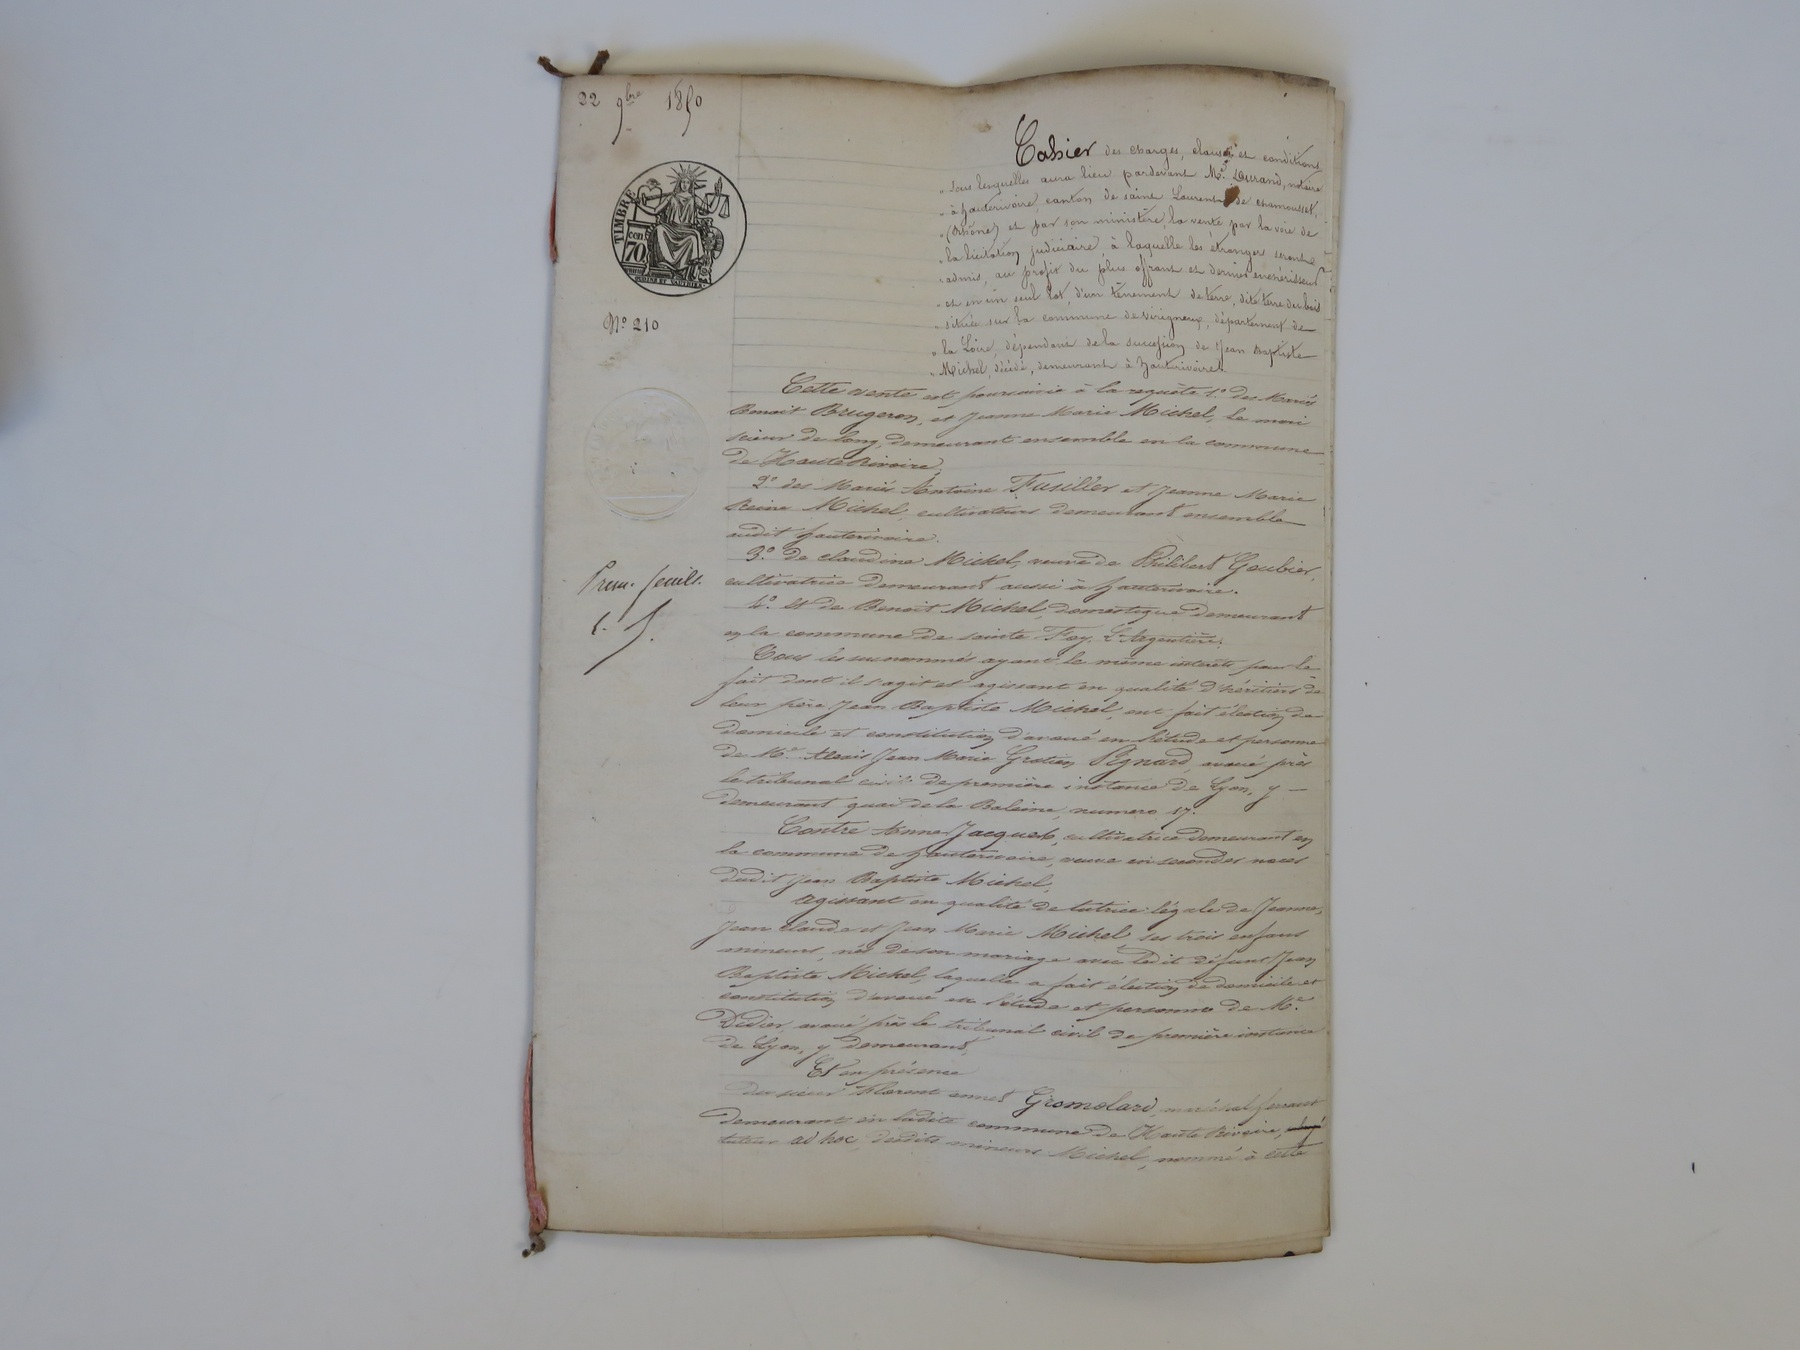 22 9bre 1850
TIMBRE
cen
70
No 210
Prem. feuill.
Cahier des charges, clauses et conditions
" sous lesquelles aura lieu pardevant Me. Durand, notaire
" à hauterivoire, canton de saint Laurent de chamousset,
" (Rhône) et par son ministère, la vente par la voie de
" la licitation judiciaire, à laquelle les étrangers seront
" admis, au profit du plus offrant et dernier enchérisseur
" et en un seul lot, d'un tènement de terre, dite terre du bois
" située sur la commune de virigneux, département de
" la Loire, dépendant de la succession de Jean Baptiste
" Michel, décédé, demeurant à hauterivoire.
Cette vente est poursuivie à la requête 1o. des Mariés
Benoit Brugeron, et Jeanne Marie Michel, le mari
scieur de long, demeurant ensemble en la commune
de Haute Rivoire,
2o. des Mariés Antoine Fusiller et Jeanne Marie
Reine Michel, cultivateurs demeurant ensemble
audit hauterivoire.
3o. De claudine Michel, veuve de Philibert Goubier,
cultivatrice demeurant aussi à hauterivoire.
4o. Et de Benoit Michel, domestique demeurant
en la commune de sainte Foy L'Argentière.
Tous les susnommés ayant le même intérêt pour le
fait dont il s'agit et agissant en qualité d'héritiers de
leur père Jean Baptiste Michel, ont fait élection de
domicile et constitution d'avoué en l'étude et personne
de Me. Alexis Jean Marie Gratien Pignard, avoué près
le tribunal civil de première instance de Lyon, y
demeurant quai de la Baleine, numero 17.
Contre Anne Jacquet, cultivatrice demeurant en
la commune de hauterivoire, veuve en secondes noces
dudit Jean Baptiste Michel,
Agissant en qualité de tutrice légale de Jeanne,
Jean claude et Jean Marie Michel ses trois enfans
mineurs, nés de son mariage avec ledit défunt Jean
Baptiste Michel, laquelle a fait élection de domicile et
constitution d'avoué en l'étude et personne de Me.
Didier, avoué près le tribunal civil de première instance
de Lyon, y demeurant,
Et en présence
du sieur Florent Gromolard, maréchal ferrant
demeurant en ladite commune de Haute Rivoire,
tuteur ad hoc, desdits mineurs Michel, nommé à cette